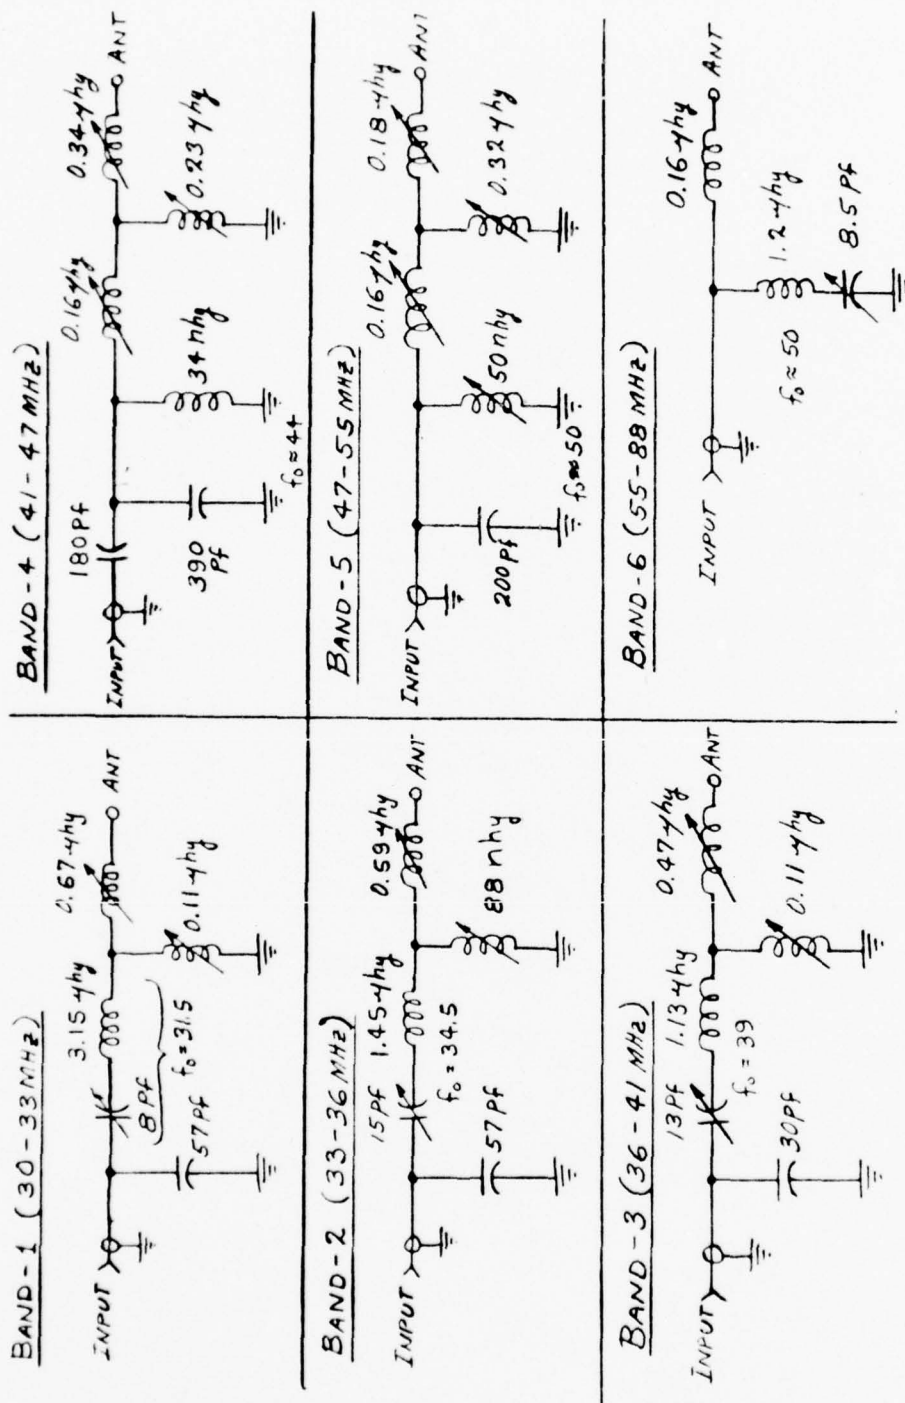 BAND-1 (30-33MHz)
INPUT
57Pf
8Pf
3.15 μhy
f₀=31.5
0.11 μhy
0.67 μhy
ANT
BAND-2 (33-36MHz)
INPUT
57Pf
15Pf
1.45 μhy
f₀=34.5
88nhy
0.59 μhy
ANT
BAND-3 (36-41MHz)
INPUT
30Pf
13Pf
1.13 μhy
f₀=39
0.11 μhy
0.47 μhy
ANT
BAND-4 (41-47MHz)
INPUT
180Pf
390
Pf
34nhy
f₀≈44
0.16 μhy
0.23 μhy
0.34 μhy
ANT
BAND-5 (47-55MHz)
INPUT
200Pf
f₀≈50
50nhy
0.16 μhy
0.32 μhy
0.18 μhy
ANT
BAND-6 (55-88MHz)
INPUT
f₀≈50
1.2 μhy
8.5Pf
0.16 μhy
ANT